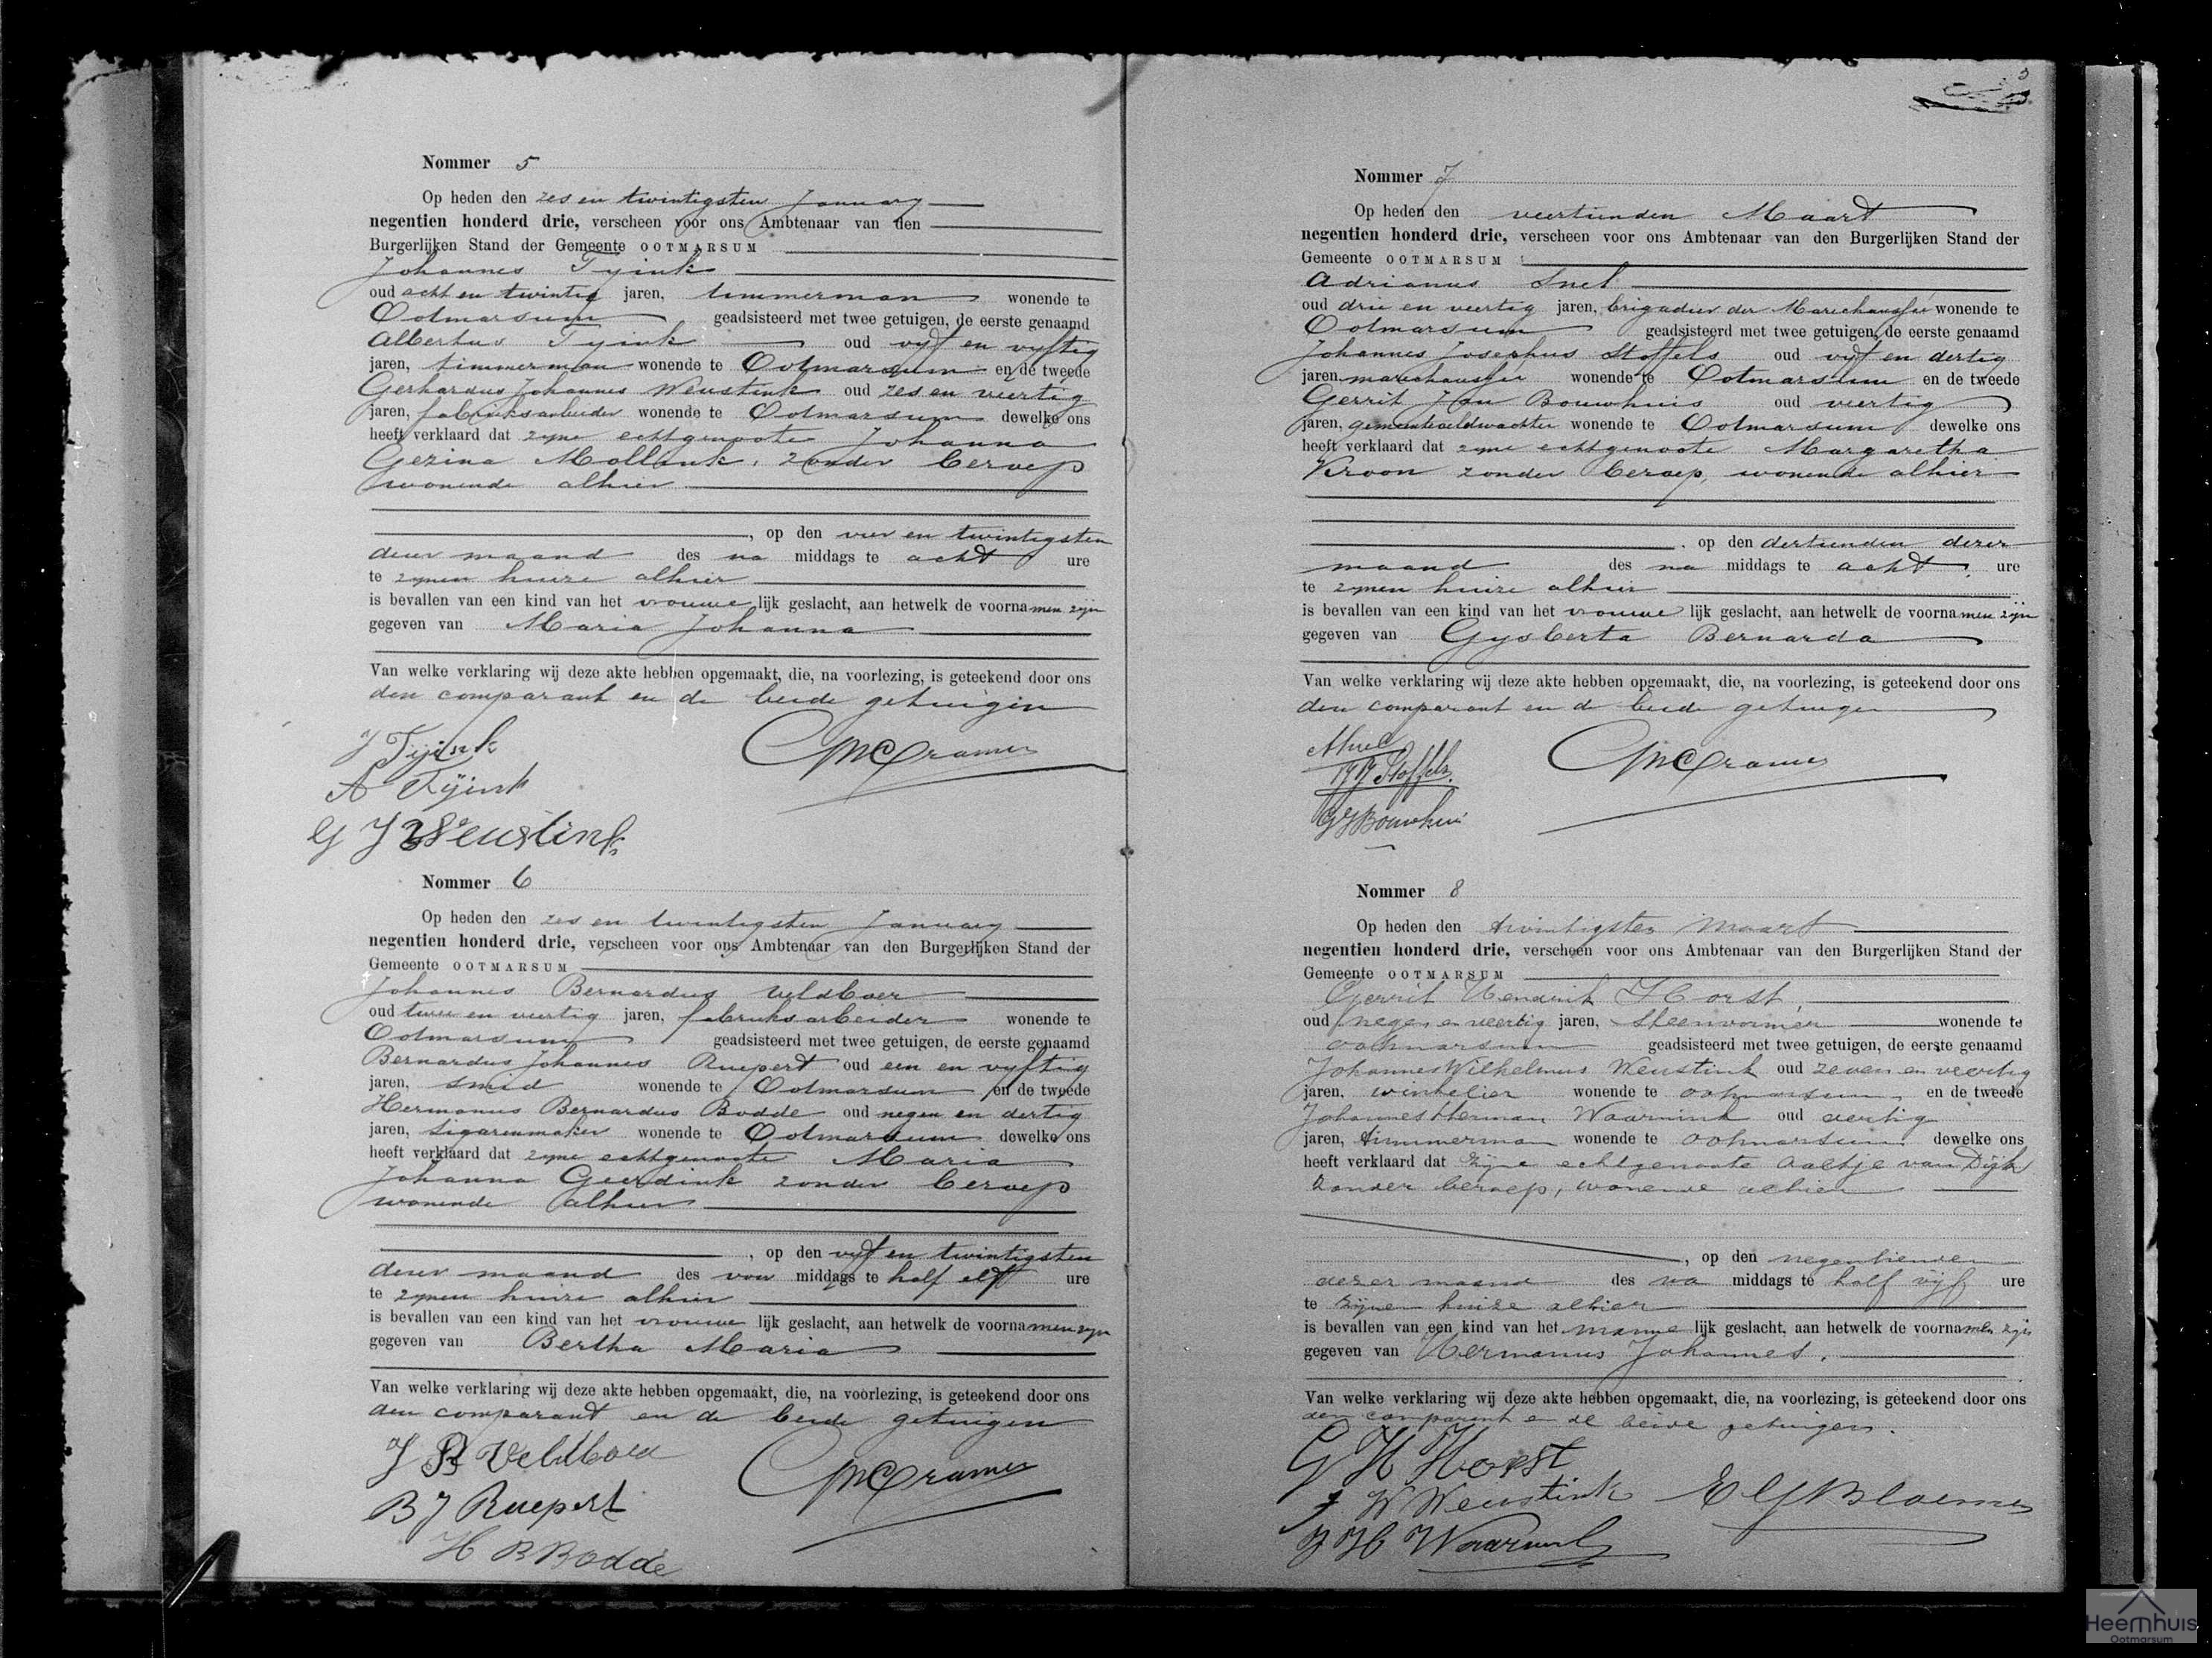 Nommer 5
Op heden den zes en twintigsten January
negentien honderd drie, verscheen voor ons Ambtenaar van den
Burgerlijken Stand der Gemeente OOTMARSUM
Johannes Tyink
oud acht en twintig jaren, timmerman wonende te
Ootmarsum geadsisteerd met twee getuigen, de eerste genaamd
Albertus Tyink oud vyf en vyftig
jaren, timmerman wonende te Ootmarsum en de tweede
Gerhardus Johannes Weustink oud zes en veertig
jaren, fabrieksarbeider wonende te Ootmarsum dewelke ons
heeft verklaard dat zyne echtgenoote Johanna
Gezina Mollink, zonder beroep
wonende alhier
, op den vier en twintigsten
dezer maand des na middags te acht ure
te zynen huize alhier
is bevallen van een kind van het vrouwe lijk geslacht, aan hetwelk de voornamen zyn
gegeven van Maria Johanna
Van welke verklaring wij deze akte hebben opgemaakt, die, na voorlezing, is geteekend door ons
den comparant en de beide getuigen
J Tijink
A Tÿink
G J Weustink
Cramer
Nommer 6
Op heden den zes en twintigsten January
negentien honderd drie, verscheen voor ons Ambtenaar van den Burgerlijken Stand der
Gemeente OOTMARSUM
Johannes Bernardus Veldboer
oud twee en veertig jaren, fabrieksarbeider wonende te
Ootmarsum geadsisteerd met twee getuigen, de eerste genaamd
Bernardus Johannes Ruepert oud een en vyftig
jaren, smid wonende te Ootmarsum en de tweede
Hermanus Bernardus Bodde oud negen en dertig
jaren, sigarenmaker wonende te Ootmarsum dewelke ons
heeft verklaard dat zyne echtgenoote Maria
Johanna Geerdink zonder beroep
wonende alhier
, op den vyf en twintigsten
dezer maand des voor middags te half elf ure
te zynen huize alhier
is bevallen van een kind van het vrouwe lijk geslacht, aan hetwelk de voornamen zyn
gegeven van Bertha Maria
Van welke verklaring wij deze akte hebben opgemaakt, die, na voorlezing, is geteekend door ons
den comparant en de beide getuigen
J B Veldboer
B J Ruepert
H B Bodde
Cramer
Nommer 7
Op heden den veertienden Maart
negentien honderd drie, verscheen voor ons Ambtenaar van den Burgerlijken Stand der
Gemeente OOTMARSUM
Adrianus Snel
oud drie en veertig jaren, brigadier der Marechaussée wonende te
Ootmarsum geadsisteerd met twee getuigen, de eerste genaamd
Johannes Josephus Stoffels oud vyf en dertig
jaren, marechaussée wonende te Ootmarsum en de tweede
Gerrit Jan Bouwhuis oud veertig
jaren, gemeenteveldwachter wonende te Ootmarsum dewelke ons
heeft verklaard dat zyne echtgenoote Margaretha
Kroon zonder beroep, wonende alhier
, op den dertienden dezer
maand des na middags te acht ure
te zynen huize alhier
is bevallen van een kind van het vrouwe lijk geslacht, aan hetwelk de voornamen zyn
gegeven van Gysberta Bernarda
Van welke verklaring wij deze akte hebben opgemaakt, die, na voorlezing, is geteekend door ons
den comparant en de beide getuigen
ASnel
Stoffels.
GJBouwhuis
Cramer
Nommer 8
Op heden den twintigsten Maart
negentien honderd drie, verscheen voor ons Ambtenaar van den Burgerlijken Stand der
Gemeente OOTMARSUM
Gerrit Hendrik Horst,
oud negen en veertig jaren, steenvormer wonende te
ootmarsum geadsisteerd met twee getuigen, de eerste genaamd
Johannes Wilhelmus Weustink oud zeven en veertig
jaren, winkelier wonende te ootmarsum, en de tweede
Johannes Herman Waarnink oud veertig
jaren, timmerman wonende te ootmarsum dewelke ons
heeft verklaard dat zijne echtgenoote Aaltje van Dijk
zonder beroep, wonende alhier
, op den negentienden
dezer maand des na middags te half vijf ure
te zijnen huize alhier
is bevallen van een kind van het manne lijk geslacht, aan hetwelk de voornamen zijn
gegeven van Hermanus Johannes.
Van welke verklaring wij deze akte hebben opgemaakt, die, na voorlezing, is geteekend door ons
den comparant en de beide getuigen.
G H Horst
J W Weustink
J H Waarnink
Heemhuis
Ootmarsum